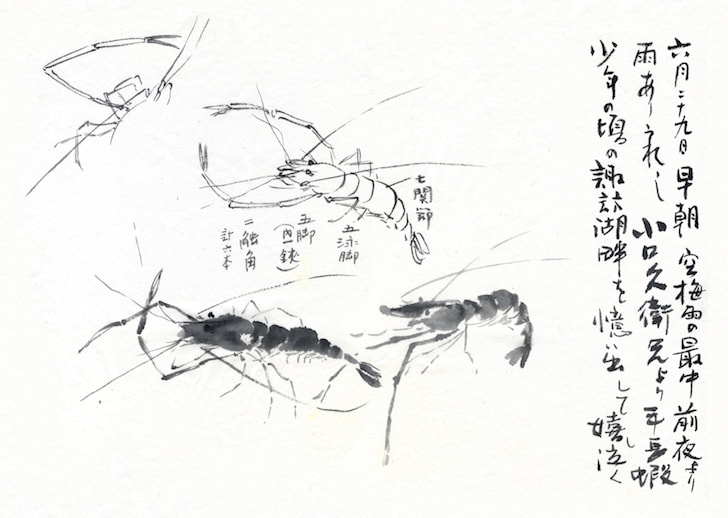 六月二十九日 早朝 空梅雨の最中 前夜より
雨ありうれし 小口久衛兄より 手長蝦
少年の頃の諏訪湖畔を憶い出して嬉し泣く
七関節
五泳脚
五脚
(内鋏)
二触角
計六本